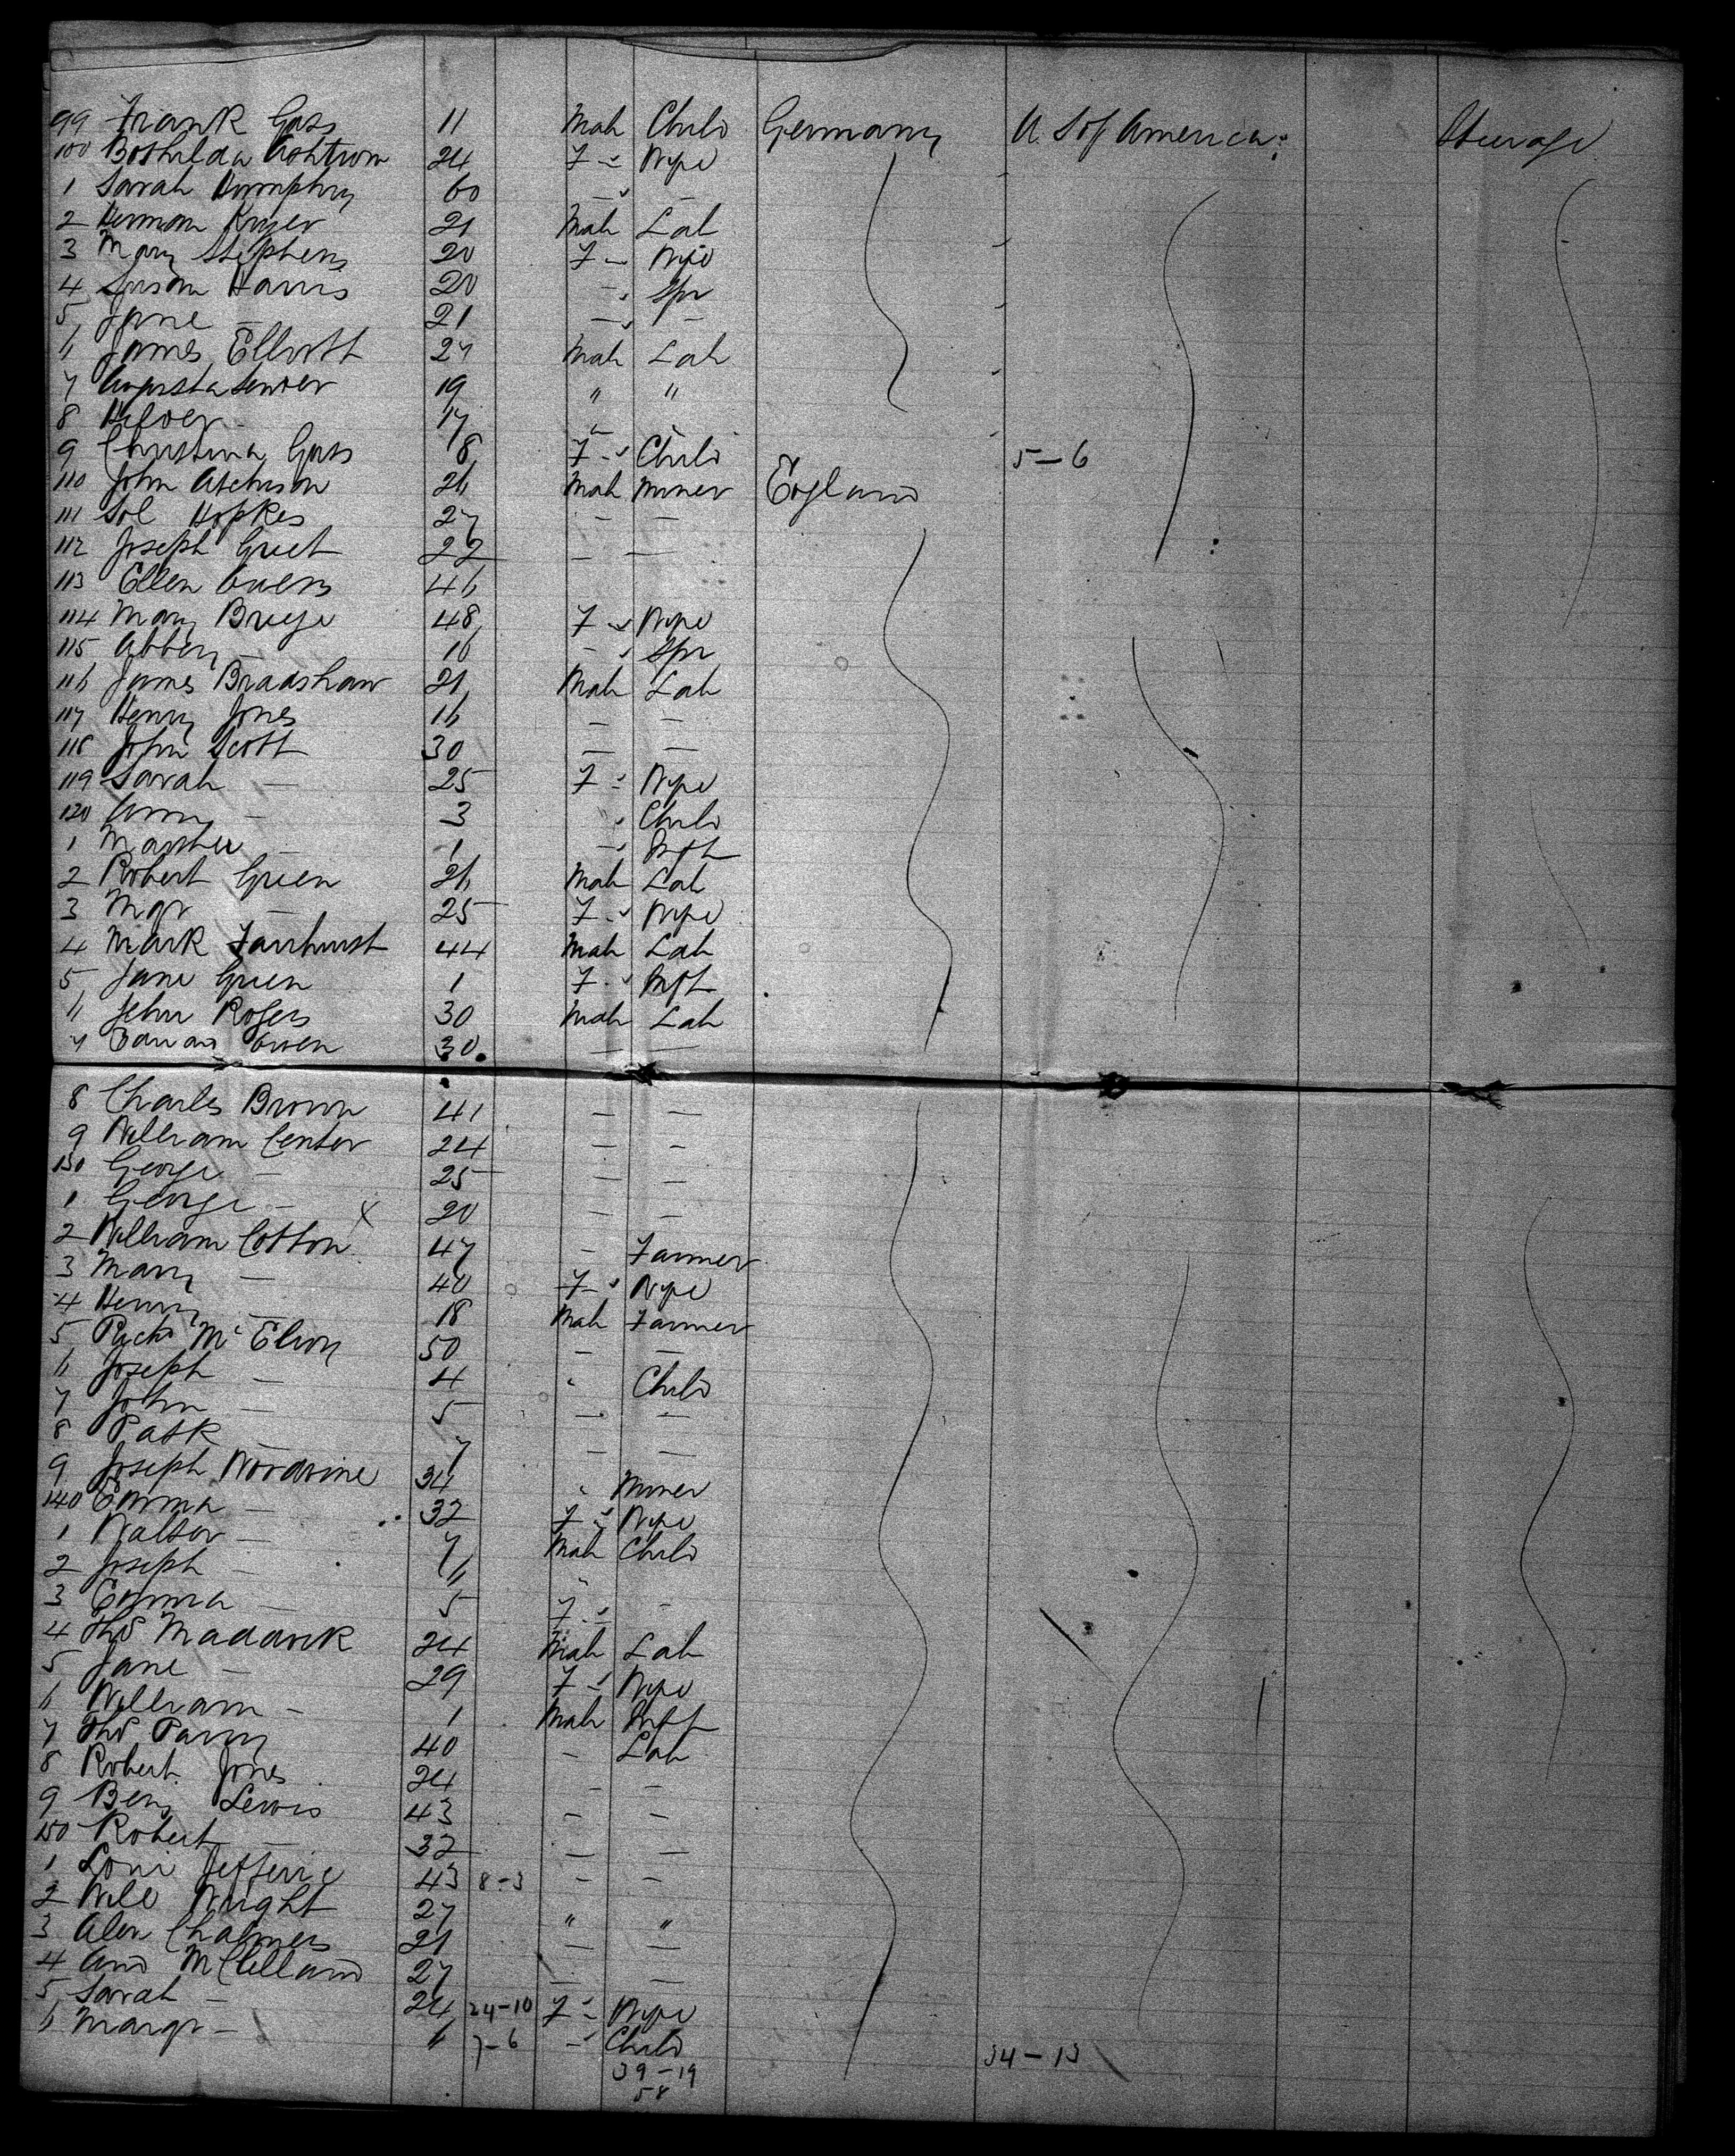 99 Frank Gass 11 Male Child Germany U. S of America Steerage
100 Bothilda Ashtrom 24 F " Wife
1 Sarah Humphry 60 — " —
2 Herman Kryer 21 Male Lab
3 Mary Stephens 20 F — Wife
4 Susan Harris 20 — " Spr
5 Jane — 21 — " —
6 James Elliott 27 Male Lab
7 Augusta 19 " "
8 17 "
9 Christina Gass 8 F " Child 5-6
110 John Atchison 26 Male Miner England
111 Sol Hopkes 27 — —
112 Joseph 22 — —
113 Ellen Owens 46
114 Mary 48 F " Wife
115 Abbey — 16 — " Spr
116 James Bradshaw 21 Male Lab
117 Henry Jones 16 — —
118 John Scott 30 — —
119 Sarah — 25 F " Wife
120 Amy — 3 " Child
1 Martha — 1 — " Inft
2 Robert Green 26 Male Lab
3 Mgr — 25 F " Wife
4 Mark Fairhurst 44 Male Lab
5 Jane Green 1 F " Inft
6 John Rogers 30 Male Lab
7 Edward Owen 30 — —
8 Charles Brown 41 — —
9 William Center 24 — —
130 George — 25 — —
1 George — x 20 — —
2 William Cotton 47 — Farmer
3 Mary — 40 F " Wife
4 Henry — 18 Male Farmer
5 Mc Elroy 50 — —
6 Joseph — 4 " Child
7 John — 5 — —
8 Patk — 7 — —
9 Joseph 34 " Miner
140 Emma — 32 F " Wife
1 Walter — 7 Male Child
2 Joseph — 6 "
3 Emma — 5 F " —
4 Thos Maddock 24 Male Lab
5 Jane — 29 F " Wife
6 William — 1 Male Inft
7 Thos Parry 40 — Lab
8 Robert Jones 24 — —
9 Benj Lewis 43 — —
150 Robert — 32 — —
1 43 8-3 — —
2 Will Wright 27 " "
3 Alex Chalmers 21 — —
4 And McClelland 27 — —
5 Sarah — 24 24-10 F " Wife
6 Margr — 6 7-6 — " Child
39-19 34-13
58